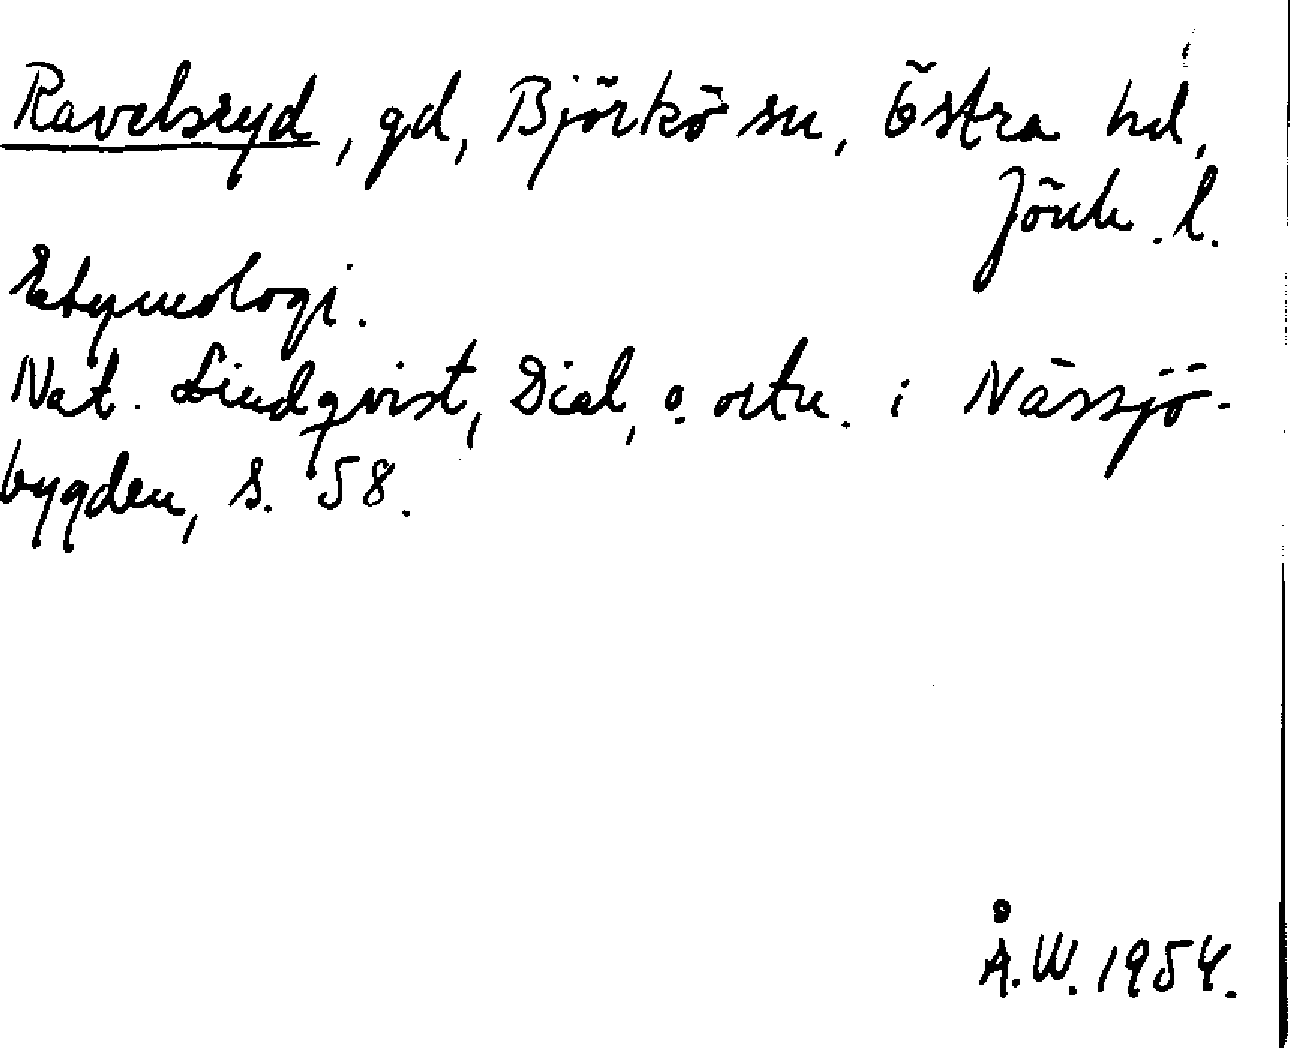 Ravelsryd, gd, Björkö sn, Östra hd,
Jönk. l.
Etymologi.
Nat. Lindqvist, Dial. o. ortn. i Nässjö-
bygden, s. 58.
Å.W. 1954.